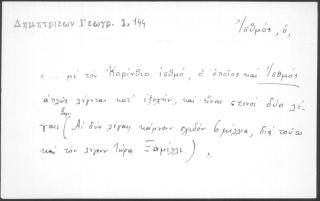 Δημητριεων Γεωγρ. 1, 144
Ἰσθμός, ὁ,
«.... μὲ τὸν Κορίνθιο ἰσθμό, ὁ ὁποῖος καὶ Ἰσθμὸς
ἁπλῶς λέγεται κατ' ἐξοχήν, καὶ εἶναι στενοὶ δύο λέ-
γαις (Αἱ δύο λέγαις κάμνουν σχεδόν 6 μίλλια, διὰ τοῦτο
καὶ τὸν λέγουν τώρα Ξαμίλλι.)